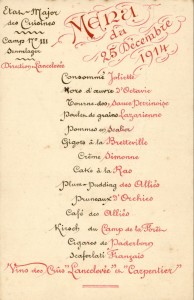 Etat-Major
des Cuisines
Camp Nº III
Sennelager
Direction Lancelevée
Menu
du
25 Décembre
1914
Consommé Joliette
Hors d'œuvre d'Octavie
Sauce Périnoise
Poulet de grains Lazarient
Pommes en Escalier
Gigots à la Bretteville
Crème Simonne
Cakes à la Ras
Plum-Pudding des Alliés
Pruneaux d'Orchies
Café des Alliés
Kirsch du Camp de la Forêt
Cigares de Paderborn
Scaferlati Français
Vins des Crûs "Lancelevée et Carpentier"